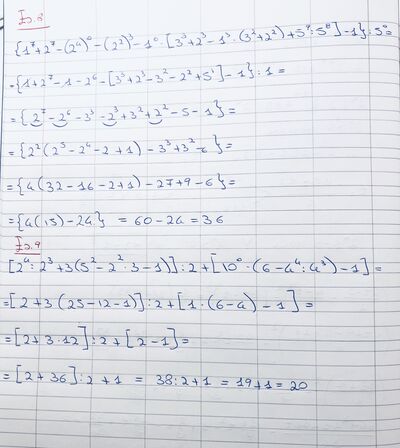 Es. 8
{1⁷+2⁷-(2⁴)⁰-(2²)³-1⁰·[3³+2³-1³·(3²+2²)+5⁹:5⁸]-1}:5⁰=
={1+2⁷-1-2⁶-[3³+2³-3²-2²+5¹]-1}:1=
={2⁷-2⁶-3³-2³+3²+2²-5-1}=
={2²(2⁵-2⁴-2+1)-3³+3²-6}=
={4(32-16-2+1)-27+9-6}=
={4(15)-24} = 60-24=36
Es. 9
[2⁴:2³+3(5²-2²·3-1)]:2+[10⁰·(6-4⁴:4³)-1]=
=[2+3(25-12-1)]:2+[1·(6-4)-1]=
=[2+3·12]:2+[2-1]=
=[2+36]:2+1 = 38:2+1 = 19+1=20